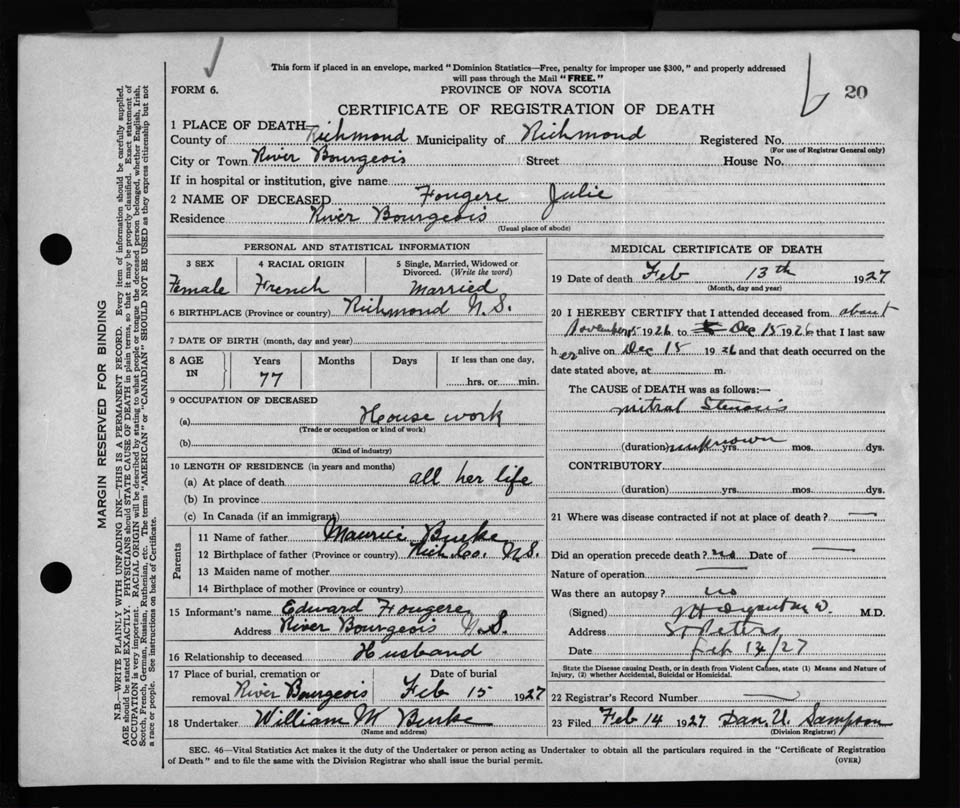 This form if placed in an envelope, marked "Dominion Statistics—Free, penalty for improper use $300," and properly addressed
will pass through the Mail "FREE."
FORM 6.
PROVINCE OF NOVA SCOTIA
20
CERTIFICATE OF REGISTRATION OF DEATH
1 PLACE OF DEATH—
County of Richmond Municipality of Richmond Registered No.
(For use of Registrar General only)
City or Town River Bourgeois Street House No.
If in hospital or institution, give name
2 NAME OF DECEASED Fougere Julie
Residence River Bourgeois
(Usual place of abode)
PERSONAL AND STATISTICAL INFORMATION
3 SEX 4 RACIAL ORIGIN 5 Single, Married, Widowed or
Divorced. (Write the word)
Female French Married
6 BIRTHPLACE (Province or country) Richmond N.S.
7 DATE OF BIRTH (month, day and year)
8 AGE IN Years Months Days If less than one day,
77 hrs. or min.
9 OCCUPATION OF DECEASED
(a) House work
(Trade or occupation or kind of work)
(b)
(Kind of industry)
10 LENGTH OF RESIDENCE (in years and months)
(a) At place of death all her life
(b) In province
(c) In Canada (if an immigrant)
Parents
11 Name of father Maurice Burke
12 Birthplace of father (Province or country) Rich. Co. N.S.
13 Maiden name of mother
14 Birthplace of mother (Province or country)
15 Informant's name Edward Fougere
Address River Bourgeois N.S.
16 Relationship to deceased Husband
17 Place of burial, cremation or Date of burial
removal River Bourgeois Feb 15 1927
18 Undertaker William M Burke
(Name and address)
MEDICAL CERTIFICATE OF DEATH
19 Date of death Feb 13th 1927
(Month, day and year)
20 I HEREBY CERTIFY that I attended deceased from about
November 1926 to Dec 15 1926 that I last saw
her alive on Dec 15 1926 and that death occurred on the
date stated above, at m.
The CAUSE of DEATH was as follows:—
mitral Stenosis
(duration) unknown yrs. mos. dys.
CONTRIBUTORY
(duration) yrs. mos. dys.
21 Where was disease contracted if not at place of death? —
Did an operation precede death? no Date of —
Nature of operation —
Was there an autopsy? no
(Signed) M.D.
Address St Peters
Date Feb 14/27
State the Disease causing Death, or in death from Violent Causes, state (1) Means and Nature of
Injury, (2) whether Accidental, Suicidal or Homicidal.
22 Registrar's Record Number
23 Filed Feb 14 1927 Dan. U. Sampson
(Division Registrar)
SEC. 46—Vital Statistics Act makes it the duty of the Undertaker or person acting as Undertaker to obtain all the particulars required in the "Certificate of Registration
of Death" and to file the same with the Division Registrar who shall issue the burial permit.
(OVER)
MARGIN RESERVED FOR BINDING
N.B.—WRITE PLAINLY, WITH UNFADING INK—THIS IS A PERMANENT RECORD. Every item of information should be carefully supplied.
AGE should be stated EXACTLY. PHYSICIANS should STATE CAUSE OF DEATH in plain terms, so that it may be properly classified. Exact statement of
OCCUPATION is very important. RACIAL ORIGIN will be described by stating to what people or tongue the deceased person belonged, whether English, Irish,
Scotch, French, German, Russian, Ruthenian, etc. The terms "AMERICAN" or "CANADIAN" SHOULD NOT BE USED as they express citizenship but not
a race or people. See instructions on back of Certificate.